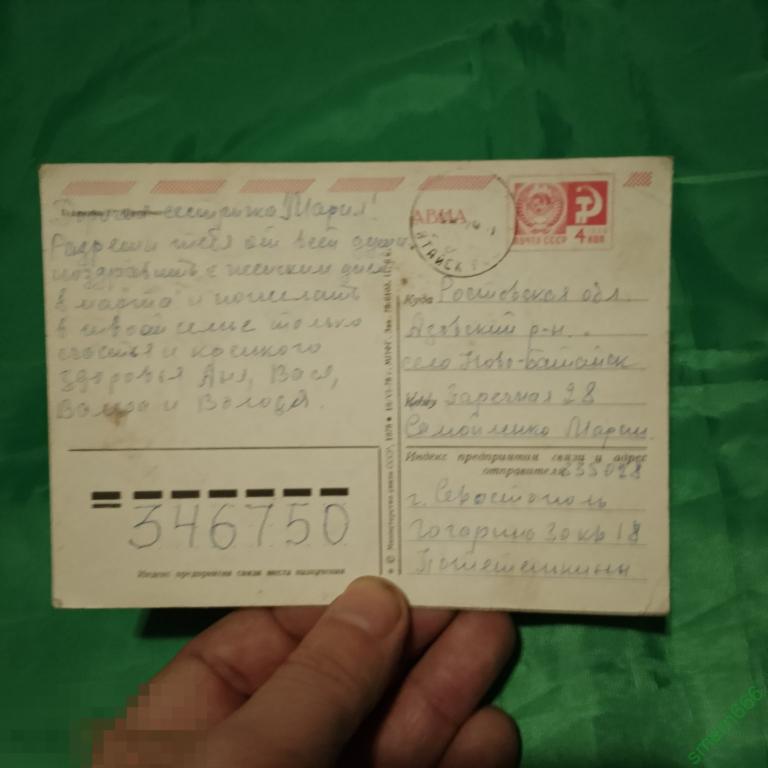 Дорогая сестричка Мария!
Разреши тебя от всей души
поздравить с женским днем
8 марта и пожелать
в твоей семье только
счастья и
здоровья Аня, Вася,
и Володя.
АВИА
ПОЧТА СССР 4 КОП
Куда Ростовская обл.
Азовский р-н.
село Ново-Батайск
Кому Заречная 28
Самойленко Марии
Индекс предприятия связи и адрес
отправителя 335028
г. Севастополь
Гагарина кв 18
346750
Индекс предприятия связи места назначения
© Министерство связи СССР, 1978
smersh666